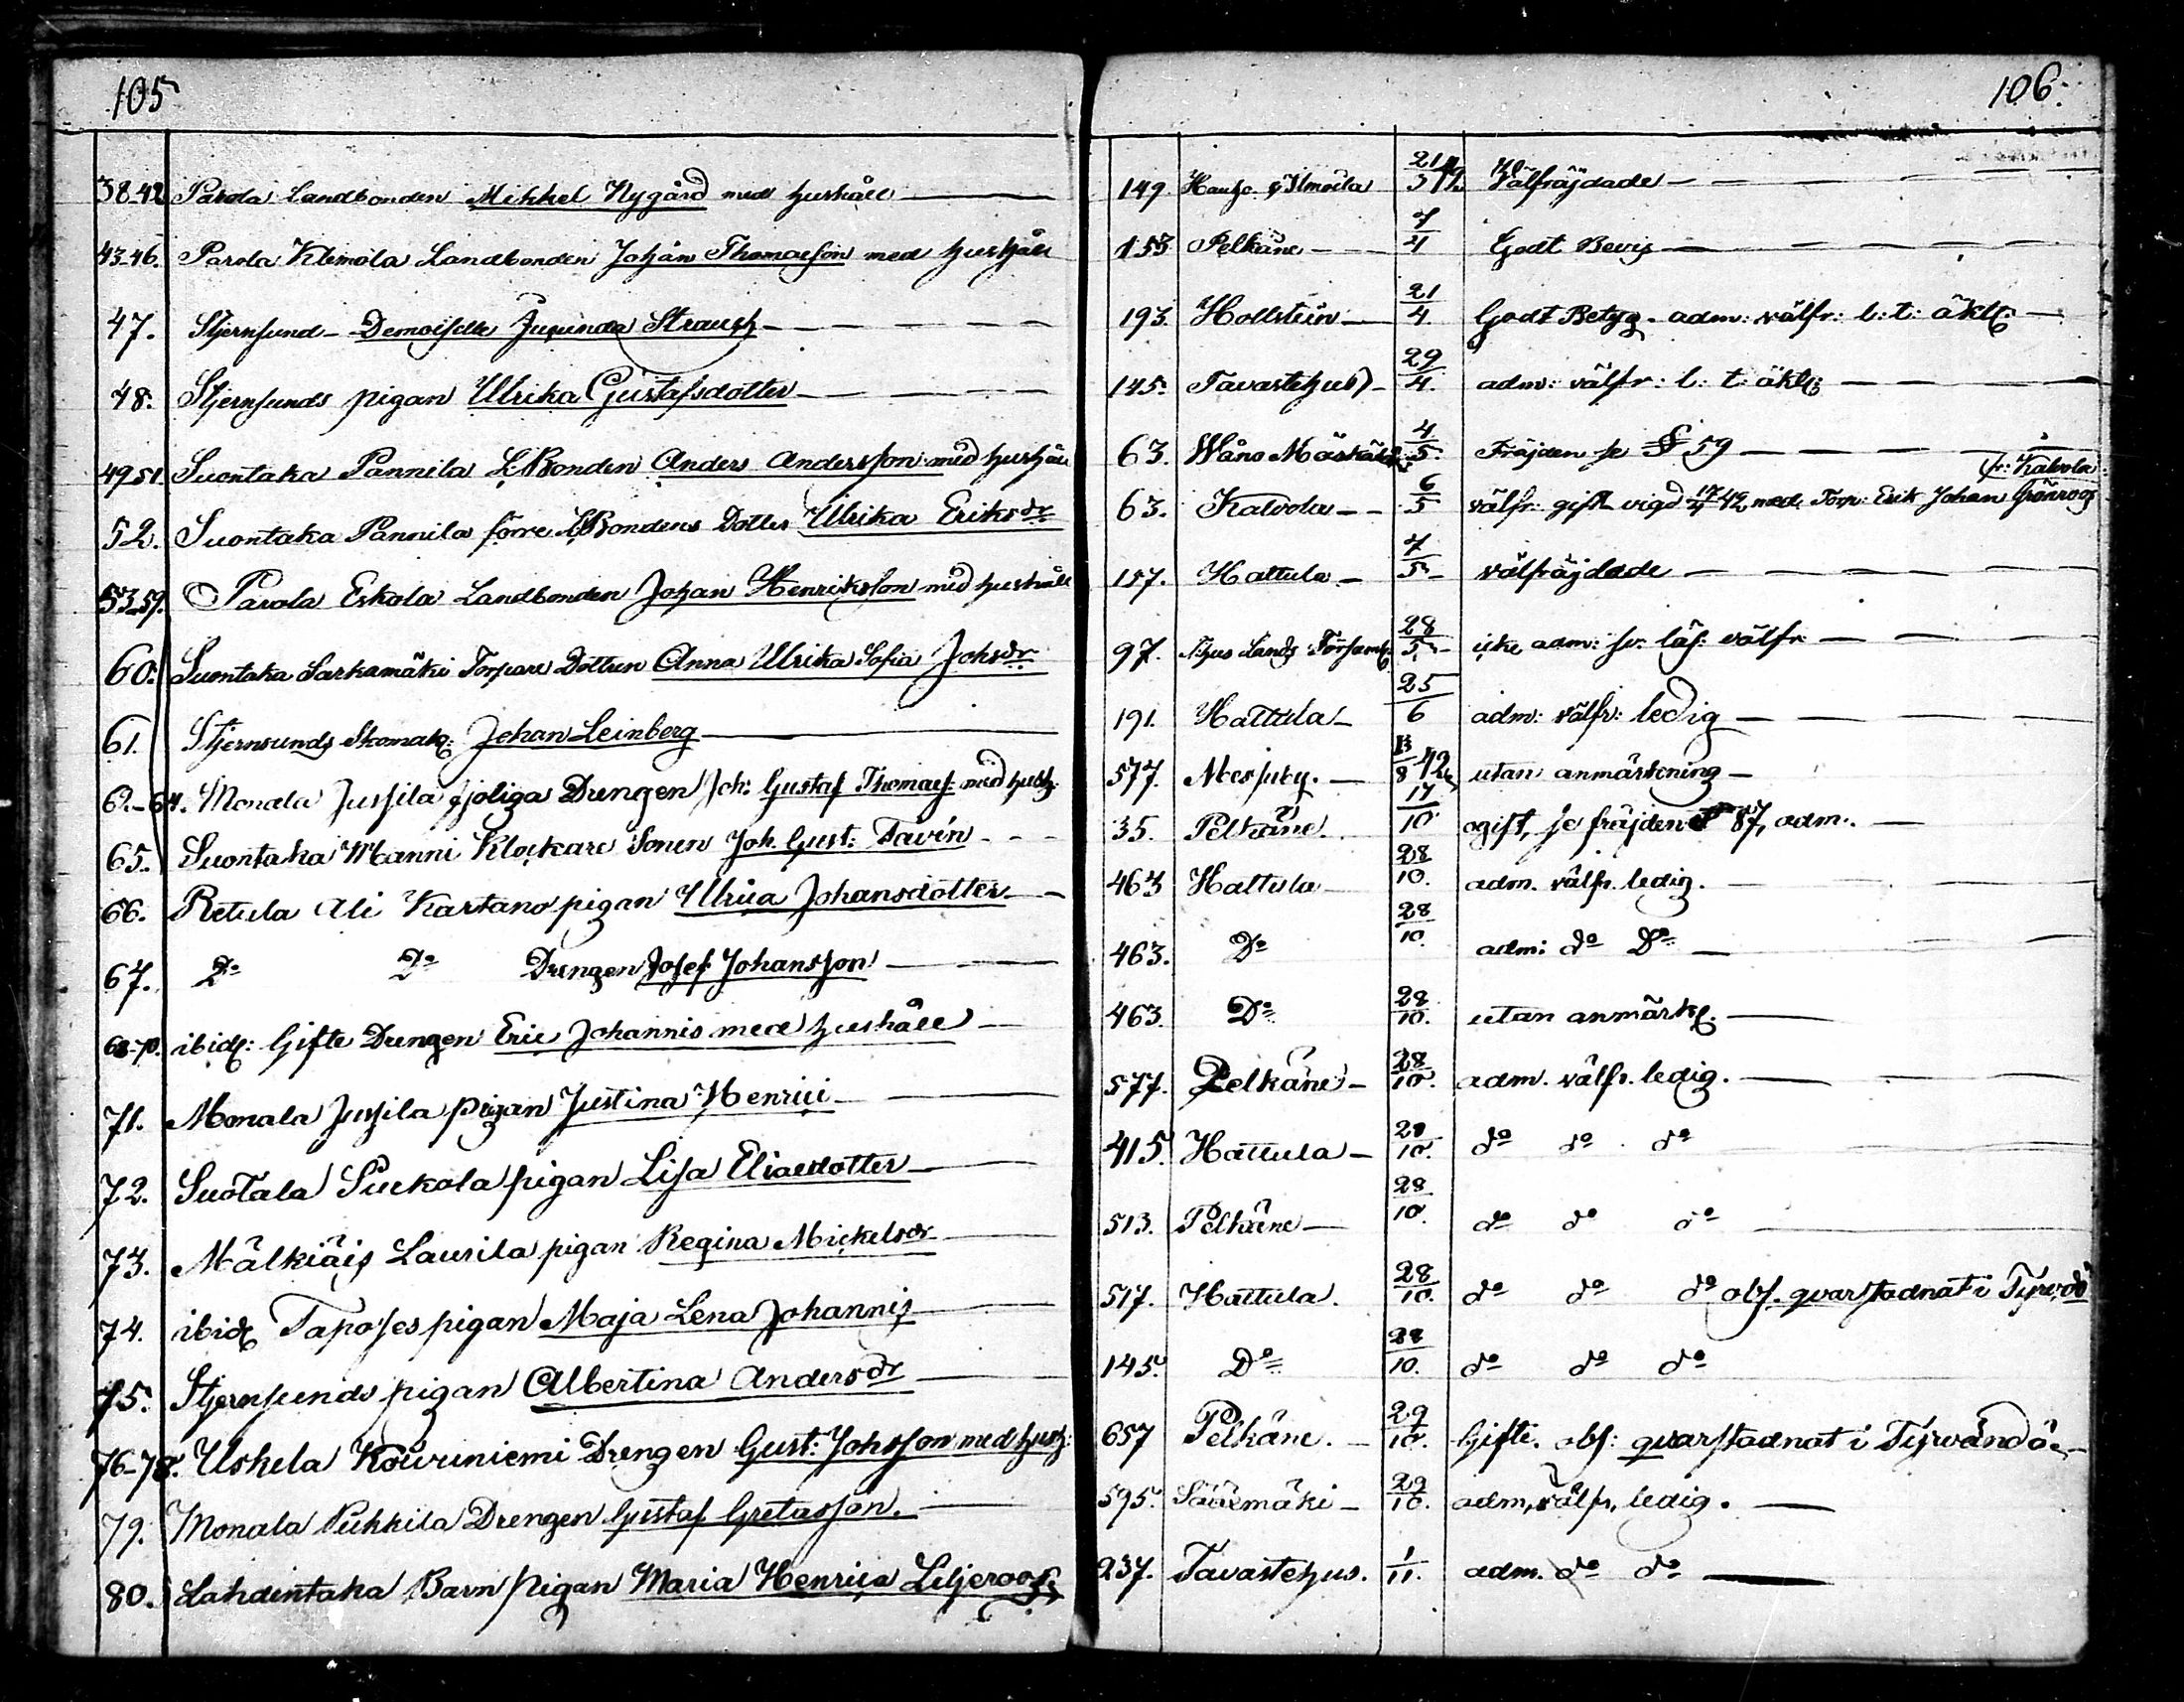 105
38-42 Parola Landbonden Mikkel Nygård med hushåll
43-46. Parola Klemola Landbonden Johan Thomasson med hushåll
47. Stjernsund Demoiselle Strausz
48. Stjernsunds pigan Ulrika Gustafsdotter
49 51 Suontaka Pannila L:Bonden Anders Andersson med hushåll
52. Suontaka Pannila förre Bondens Dotter Ulrika Eriksdr
53-59. Parola Eskola Landbonden Johan Henriksson med hushåll
60. Suontaka Sarkamäki Torpare Dottren Anna Ulrika Sofia Johsdr
61. Stjernsunds Skomak: Johan Leinberg
62-64. Monala Jussila Drengen Joh: Gustaf Thomaes: med hush.
65. Suontaka Manni Klockare Sonen Joh. Gust: Tavén
66. Retula Ali Kartano pigan Ulrica Johansdotter
67. Do Do Drengen Josef Johansson
68-70. ibid: Gifte Drengen Eric Johannis med hushåll
71. Monala Jussila pigan Justina Henrici
72. Suotala Pigan Lisa Eliaedotter
73. Mälkiäis Laurila pigan Regina Mickelsdr
74. ibid Taposes pigan Maja Lena Johannis
75. Stjernsunds pigan Albertina Andersdr
76-78. Uskela Kouruniemi Drengen Gust: Johsson med hush:
79. Monala Pukkila Drengen Gustaf Gretasson.
80. Lahdentaka Barn Pigan Maria Henrica Liljeroos
106.
149. Hauho 21/3 42. Välfräjdade
153 Pelkäne 7/4 Godt Bevis
193. Hollstein 21/4. Godt Betyg. adm: välfr: l: t: äkt.
145. Tavastehus 29/4. adm: välfr: l: t: äkt
63. Wåno 4/5. Fräjden se § 59
fr: Kalvola
63. Kalvola 6/5 välfr: gift vigd 17/4 42 med Torp: Erik Johan Grönroos
157. Hattula 7/5 välfräjdade
97. T:hus Lands Församl. 28/5 icke adm: sv: läs: välfr
191. Hattula 25/6 adm: välfr: ledig
577. Messuby. 13/8 42 utan anmärkning
35. Pelkäne 17/10 ogift, se fräjden 87, adm.
463 Hattula 28/10. adm. välfr. ledig.
463. Do 28/10. adm: do Do
463. Do 28/10. utan anmärk.
577. Pelkäne 28/10. adm. välfr. ledig.
415. Hattula 28/10. do do do
513. Pelkäne 28/10. do do do
517. Hattula. 28/10. do do do obs. qvarstadnat i Tyrvändö
145. Do 28/10. do do do
657 Pelkäne. 29/10. Gifte. obs: qvarstadnat i Tyrvändö
595. Säämäki 29/10. adm, välfr, ledig.
237. Tavastehus. 1/11. adm. do do